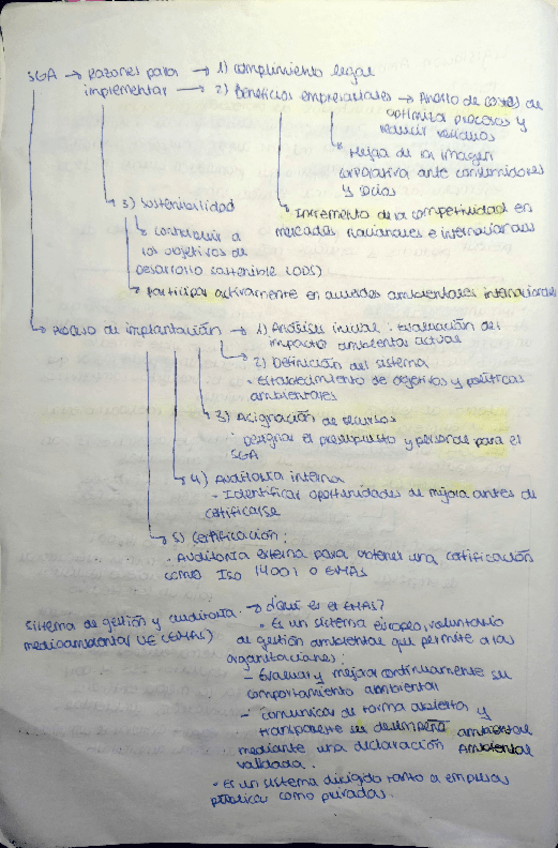 SGA → Razones para → 1) cumplimiento legal
implementar → 2) Beneficios empresariales → Ahorro de costes al
optimizar procesos y
reducir residuos
* Mejora de la imagen
corporativa ante consumidores
y socios
* Incremento de la competitividad en
mercados nacionales e internacionales
3) Sostenibilidad
↳ contribuir a
los objetivos de
desarrollo sostenible (ODS)
→ Participar activamente en acuerdos ambientales internacionales
→ Proceso de implantación → 1) Análisis inicial: Evaluación del
impacto ambiental actual
2) Definición del sistema
- Establecimiento de objetivos y políticas
ambientales
3) Asignación de recursos
· Designar el presupuesto y personal para el
SGA
4) Auditoría interna
- Identificar oportunidades de mejora antes de
certificarse
5) Certificación:
· Auditoría externa para obtener una certificación
como ISO 14001 o EMAS
Sistema de gestión y auditoría → ¿Qué es el EMAS?
medioambiental UE (EMAS)
· Es un sistema europeo, voluntario
de gestión ambiental que permite a las
organizaciones:
- Evaluar y mejorar continuamente su
comportamiento ambiental
- comunicar de forma abierta y
transparente su desempeño ambiental
mediante una declaración Ambiental
validada.
· Es un sistema dirigido tanto a empresas
públicas como privadas.